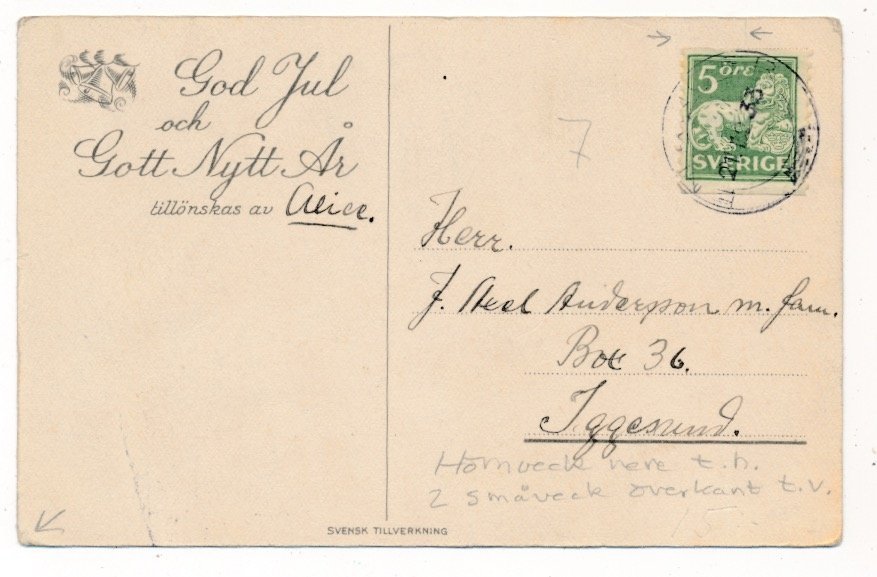 God Jul
och
Gott Nytt År
tillönskas av Alice.
7
5 ÖRE
SVERIGE
33
Herr.
J. Axel Andersson m. fam.
Box 36.
Iggesund.
Hörnveck nere t.h.
2 småveck överkant t.v.
SVENSK TILLVERKNING